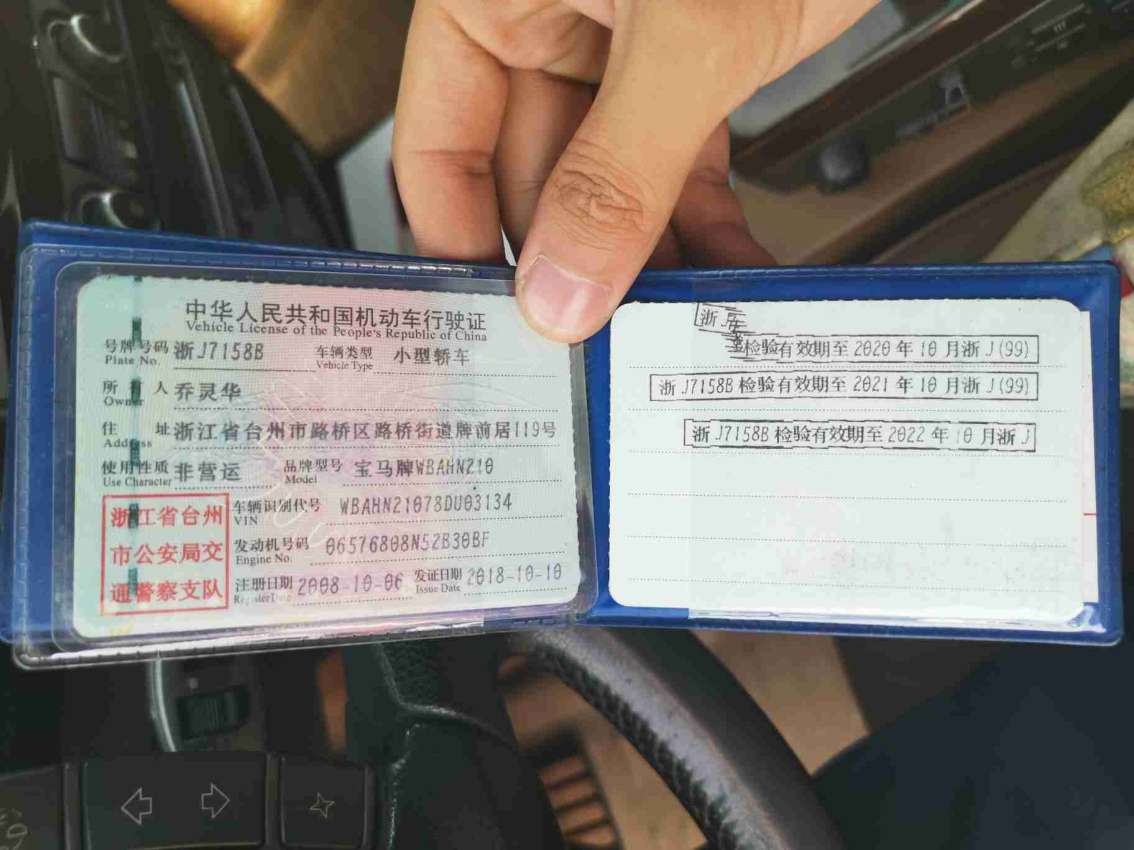 中华人民共和国机动车行驶证
Vehicle License of the People's Republic of China
号牌号码 浙J7158B 车辆类型 小型轿车
Plate No. Vehicle Type
所有人 乔灵华
Owner
住址 浙江省台州市路桥区路桥街道牌前居119号
Address
使用性质 非营运 品牌型号 宝马牌WBAHN210
Use Character Model
浙江省台州
市公安局交
通警察支队
车辆识别代号 WBAHN21078DU03134
VIN
发动机号码 06576808N52B30BF
Engine No.
注册日期 2008-10-06 发证日期 2018-10-10
Register Date Issue Date
浙J
检验有效期至2020年10月浙J(99)
浙J7158B检验有效期至2021年10月浙J(99)
浙J7158B检验有效期至2022年10月浙J